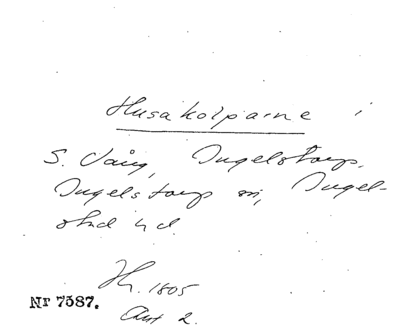 Husakolparne i
S. Vång, Ingelstorp,
Ingelstorps sn, Ingel-
stad hd.
1805
Akt 2.
Nr 7587.